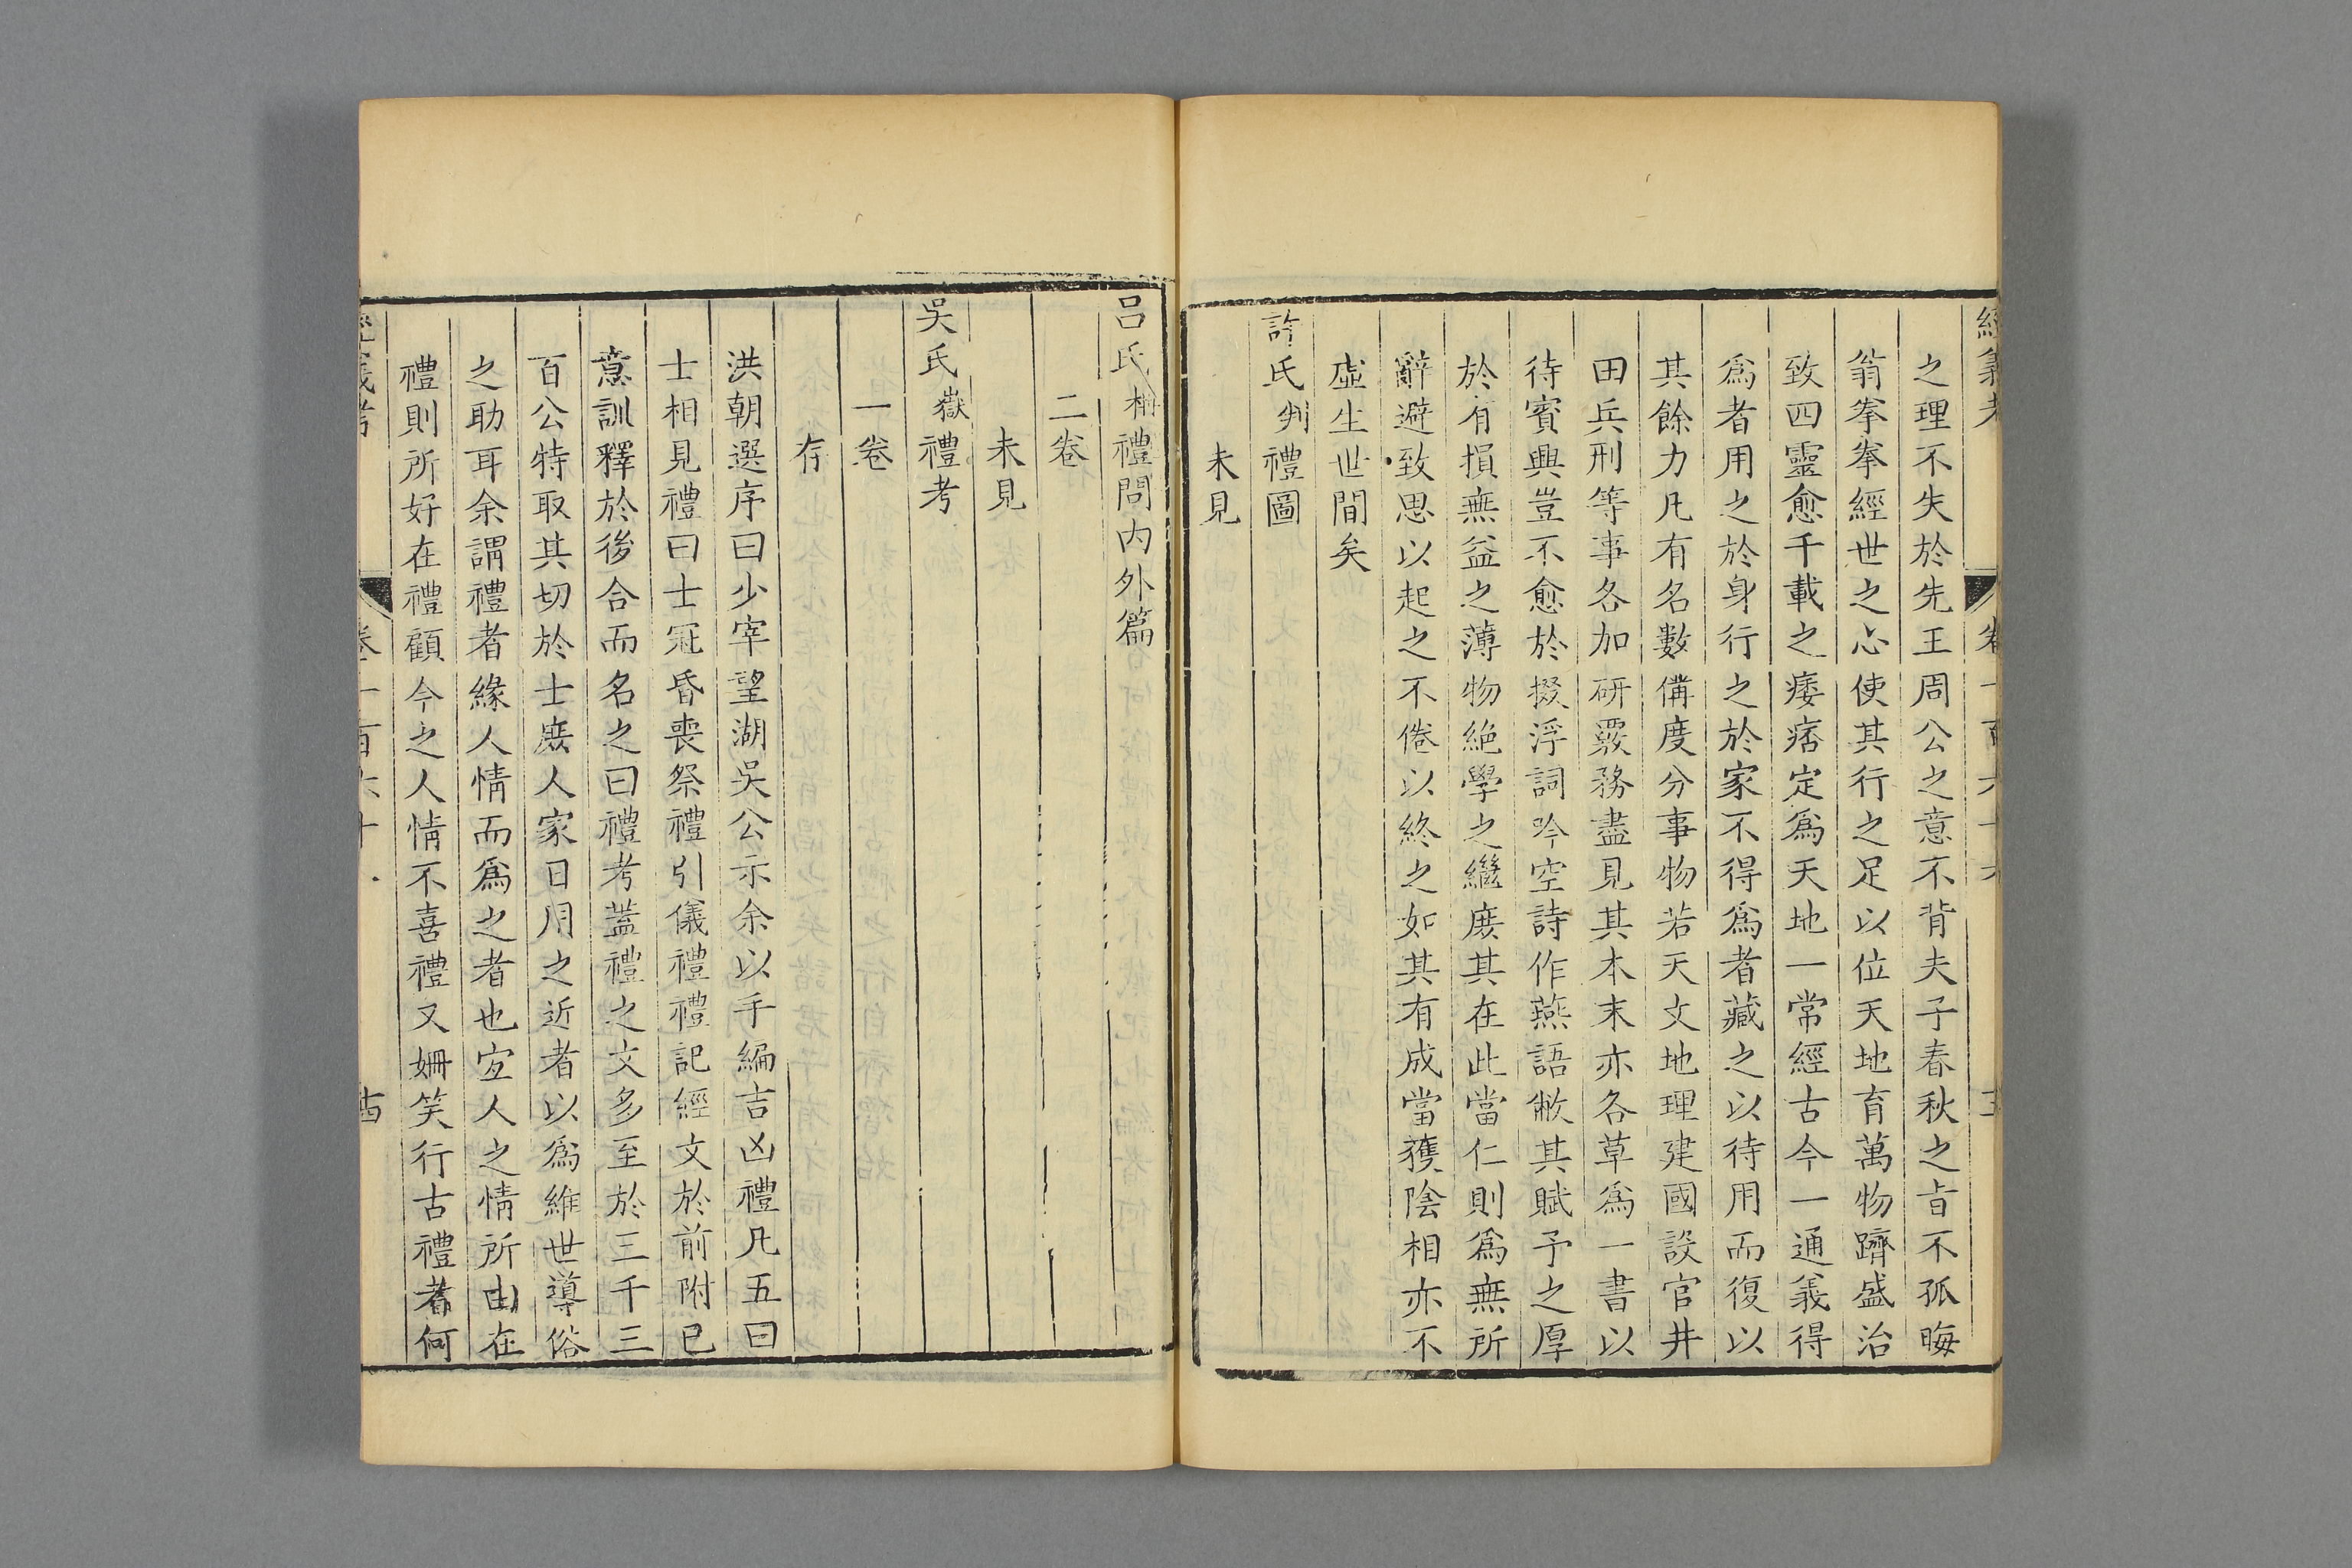 經義考
卷一百六十六
之理不失於先王周公之意不背夫子春秋之㫖不孤晦
翁拳拳經世之心使其行之足以位天地育萬物躋盛治
致四靈愈千載之痿痞定爲天地一常經古今一通義得
爲者用之於身行之於家不得爲者藏之以待用而復以
其餘力凡有名數備度分事物若天文地理建國設官井
田兵刑等事各加研覈務盡見其本末亦各草爲一書以
待賓興豈不愈於掇浮詞吟空詩作燕語敝其賦予之厚
於有損無益之薄物絶學之繼庻其在此當仁則爲無所
辭避致思以起之不倦以終之如其有成當獲陰相亦不
虛生世間矣
許氏判禮圖
未見
呂氏柟禮問内外篇
二卷
未見
吳氏嶽禮考
一卷
存
洪朝選序曰少宰望湖吳公示余以手編吉凶禮凡五曰
士相見禮曰士冠昏喪祭禮引儀禮禮記經文於前附已
意訓釋於後合而名之曰禮考葢禮之文多至於三千三
百公特取其切於士庻人家日用之近者以爲維世導俗
之助耳余謂禮者緣人情而爲之者也宐人之情所由在
禮則所好在禮顧今之人情不喜禮又姍笑行古禮者何
經義考
卷一百六十
十四